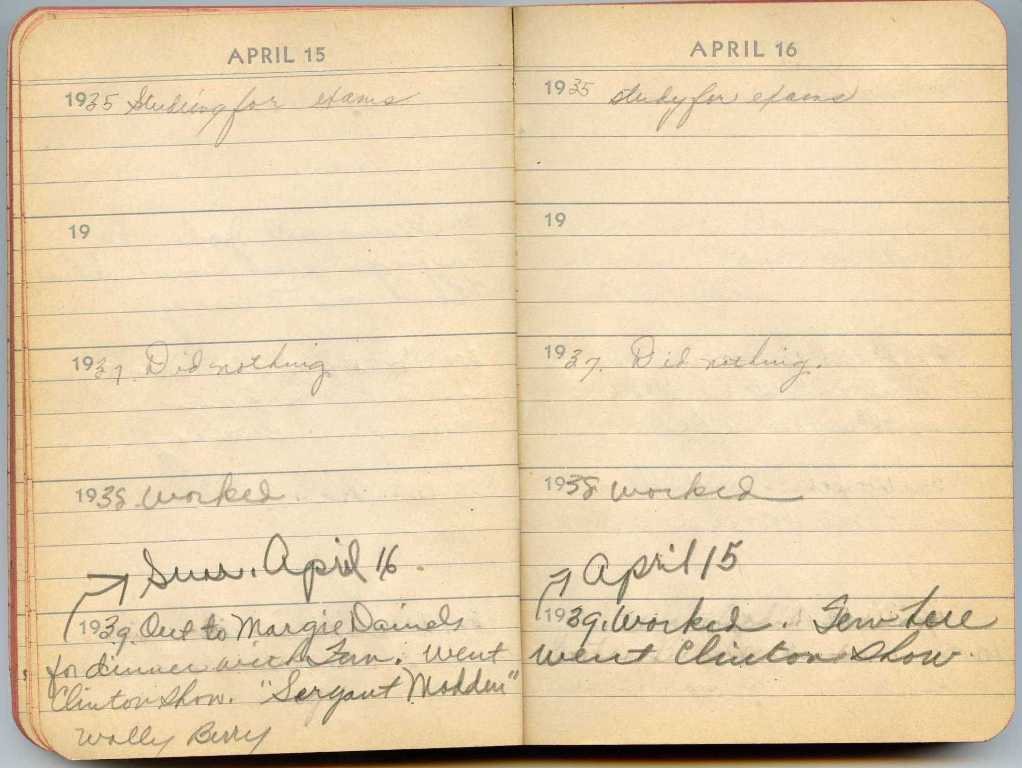 APRIL 15
1935 Studying for exams
19
1937. Did nothing
1938. worked
Sun. April 16.
1939. Out to Margie Daniels
for dinner with Fern. Went
Clinton show. "Sergant Madden"
Wally Berry
APRIL 16
1935 study for exams
19
1937. Did nothing.
1938 worked
April 15
1939. Worked. Fern here
went Clinton show.